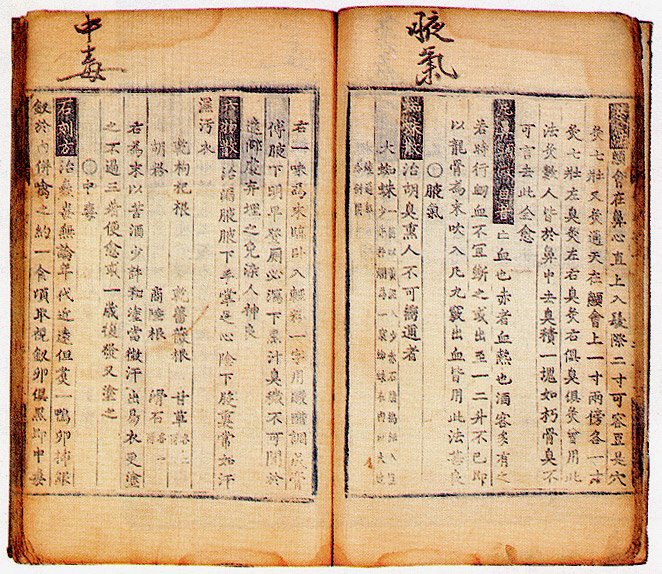 腋氣
顖會在鼻心直上入髮際二寸可容豆是穴
灸七壯又灸通天在顖會上一寸兩傍各一寸
灸七壯左臭灸左右臭灸右俱臭俱灸曾用此
法灸數人皆於鼻中去臭積一塊如朽骨臭不
可言去此全愈
亡血也赤者血熱也酒客多有之
若時行衂血不宜斷之或出至一二升不已即
以龍骨為末吹入凡九竅出血皆用此法甚良
○腋氣
蜘蛛散 治胡臭熏人不可嚮邇者
大蜘蛛
中毒
右一味為末臨卧入輕粉一字用醋調成膏
傅腋下明早登厠必瀉下黑汁臭穢不可聞於
遠僻處弃埋之免染人神良
六物散 治漏腋腋下手掌足心陰下股裏常如汗
濕污衣
乾枸杞根 乾薔薇根 甘草各二兩
胡粉 商陸根 滑石各一兩
右為末以苦酒少許和塗當微汗出易衣更塗
之不過三着便愈或一歲復發又塗之
○中毒
石刻方 治蠱毒無論年代近遠但煮一鴨卵揷銀
釵於內併噙之約一食頃取視釵卵俱黑即中毒